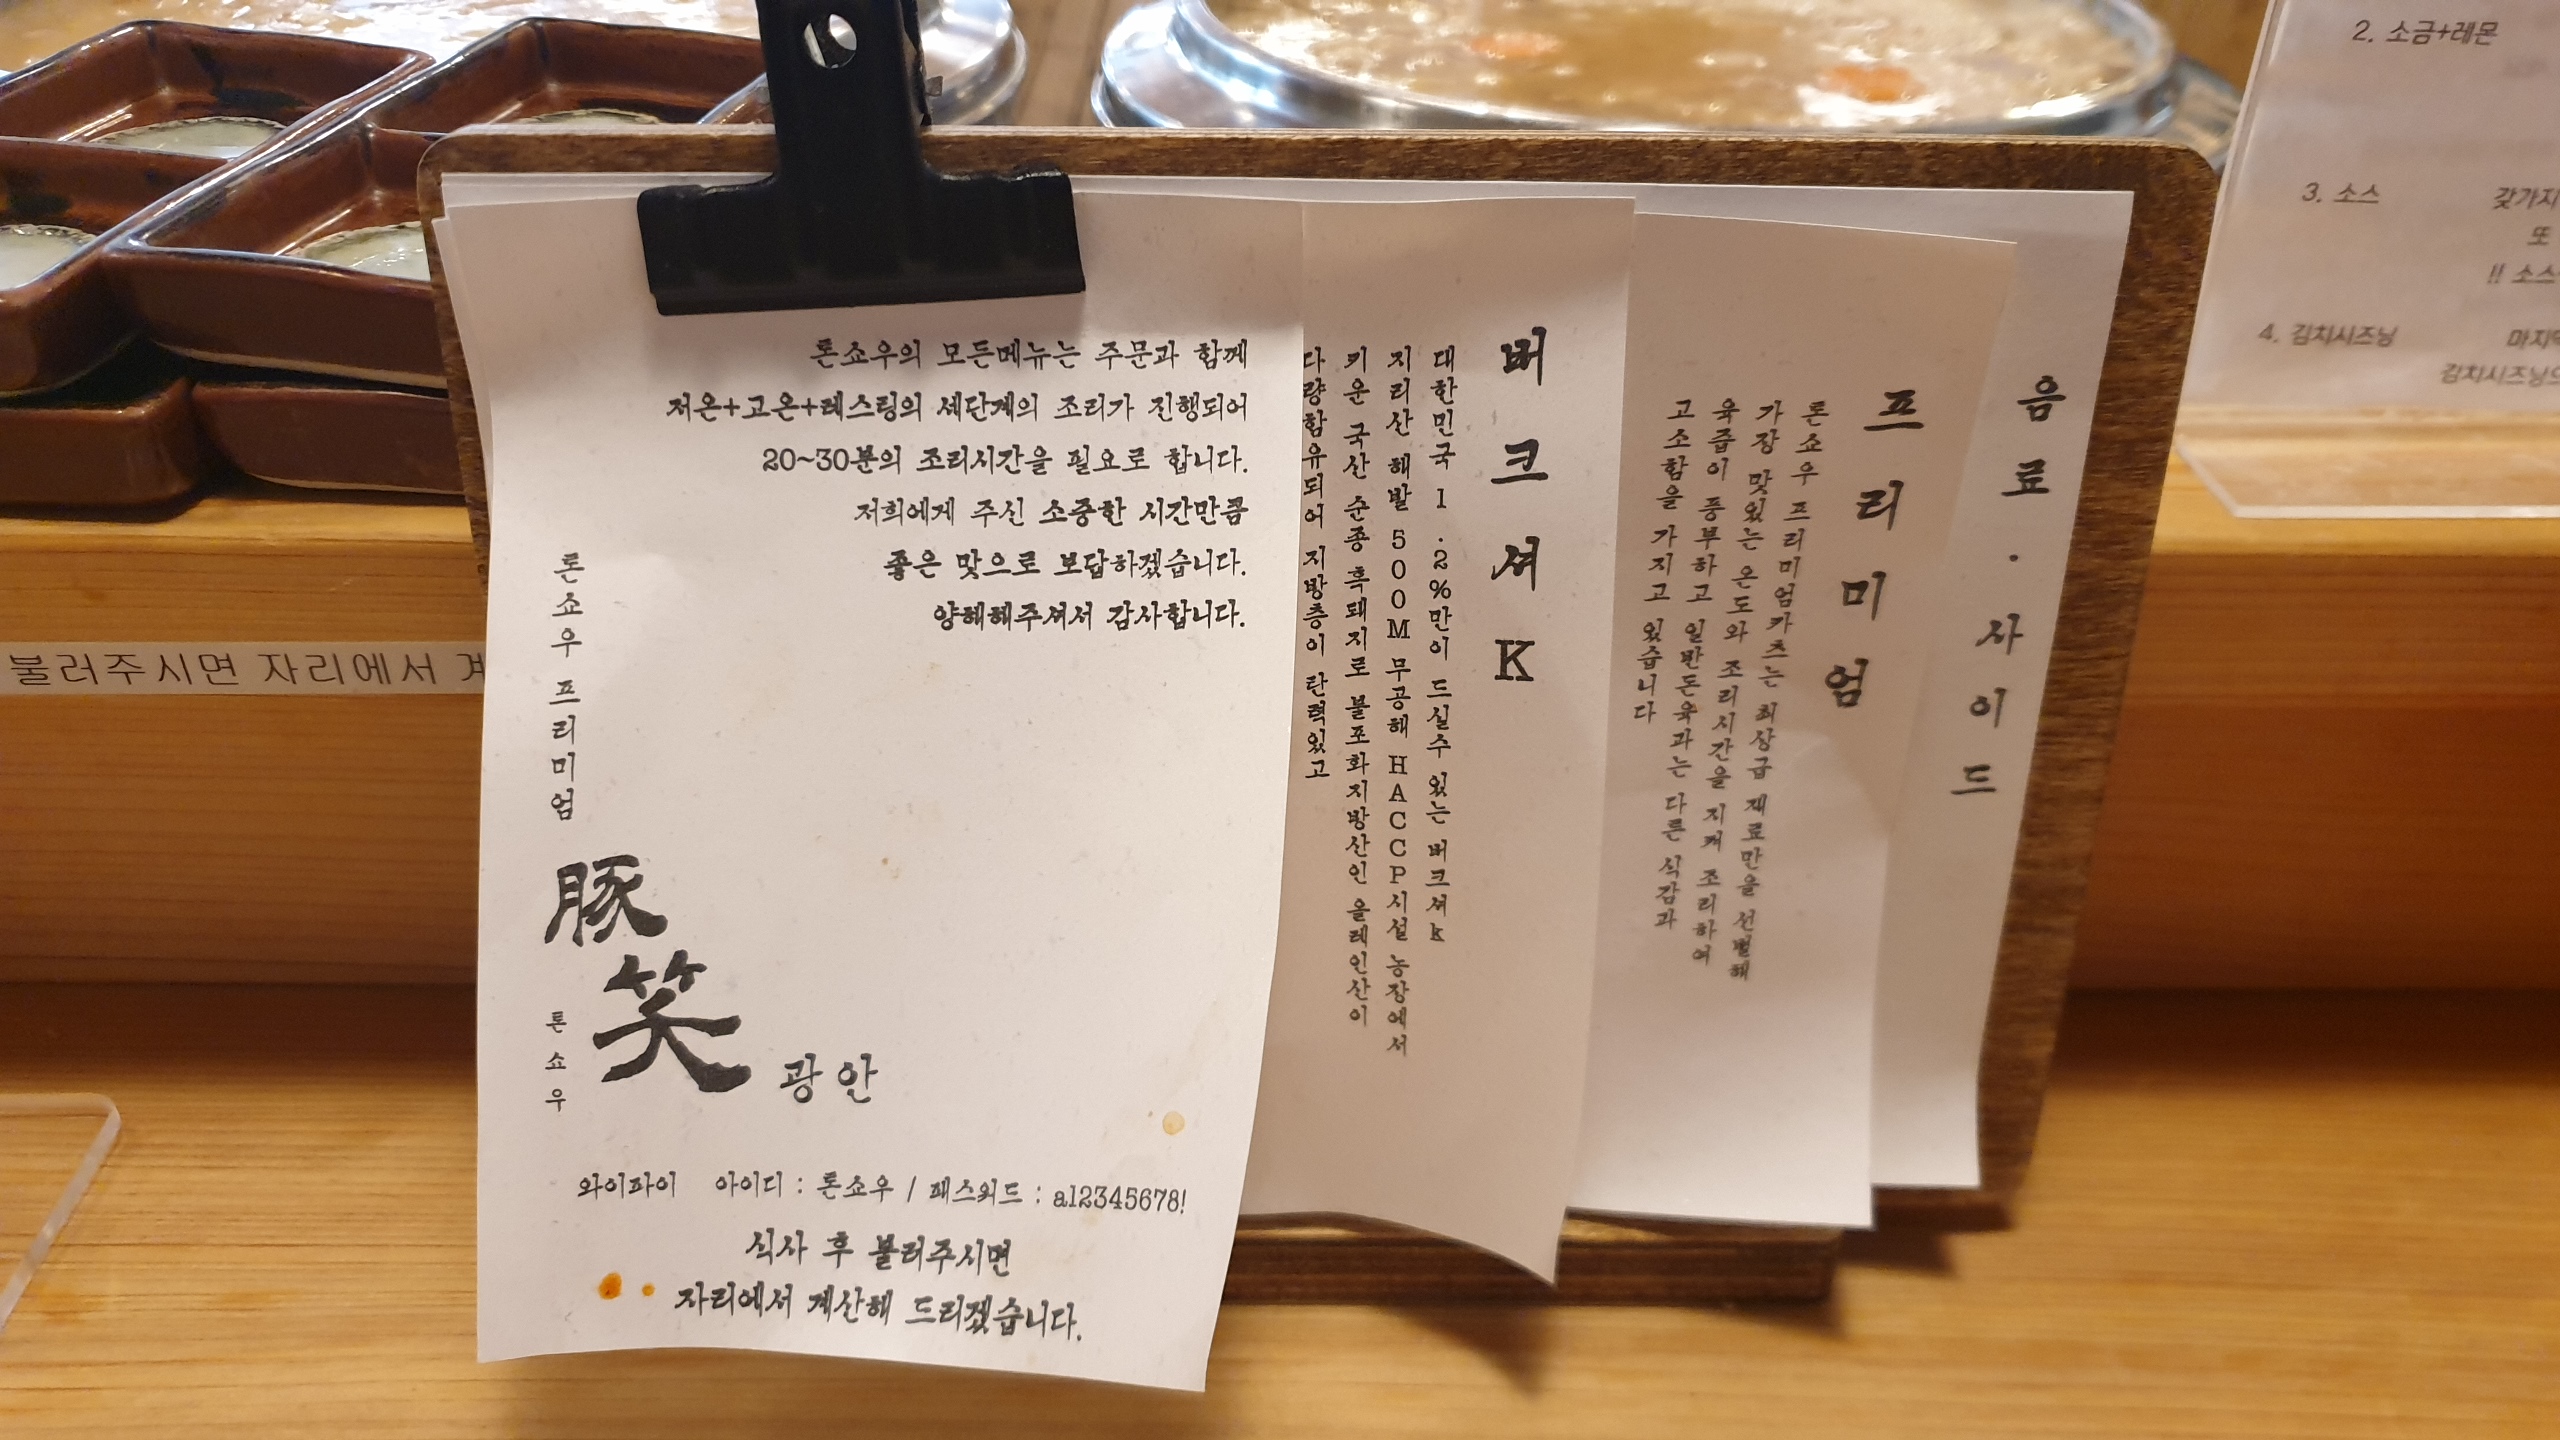 톤쇼우의 모든메뉴는 주문과 함께
저온+고온+레스팅의 세단계의 조리가 진행되어
20~30분의 조리시간을 필요로 합니다.
저희에게 주신 소중한 시간만큼
좋은 맛으로 보답하겠습니다.
양해해주셔서 감사합니다.
톤쇼우 프리미엄
豚笑
톤쇼우
광안
와이파이 아이디 : 톤쇼우 / 패스워드 : a12345678!
식사 후 불러주시면
자리에서 계산해 드리겠습니다.
버크셔K
대한민국 1.2%만이 드실수 있는 버크셔k
지리산 해발 500M 무공해 HACCP시설 농장에서
키운 국산 순종 흑돼지로 불포화지방산인 올레인산이
다량함유되어 지방층이 탄력있고
프리미엄
톤쇼우 프리미엄카츠는 최상급 재료만을 선별해
가장 맛있는 온도와 조리시간을 지켜 조리하여
육즙이 풍부하고 일반돈육과는 다른 식감과
고소함을 가지고 있습니다
음료·사이드
불러주시면 자리에서
2. 소금+레몬
3. 소스 갖가지
또
!! 소스
4. 김치시즈닝
김치시즈닝으